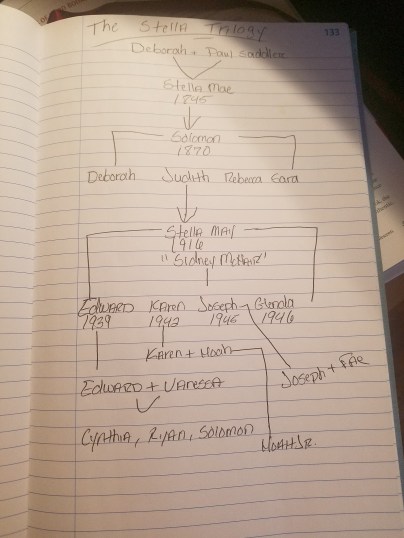 The Stella Trilogy
133
Deborah + Paul Saddler
Stella Mae
1845
Solomon
1870
Deborah Judith Rebecca Sara
Stella MAY
1916
"Sidney McNair"
EDWARD Karen Joseph Glenda
1939 1942 1945 1946
Karen + Noah
Joseph + FAE
EDWARD + VANESSA
Cynthia, Ryan, Solomon
NOAH JR.